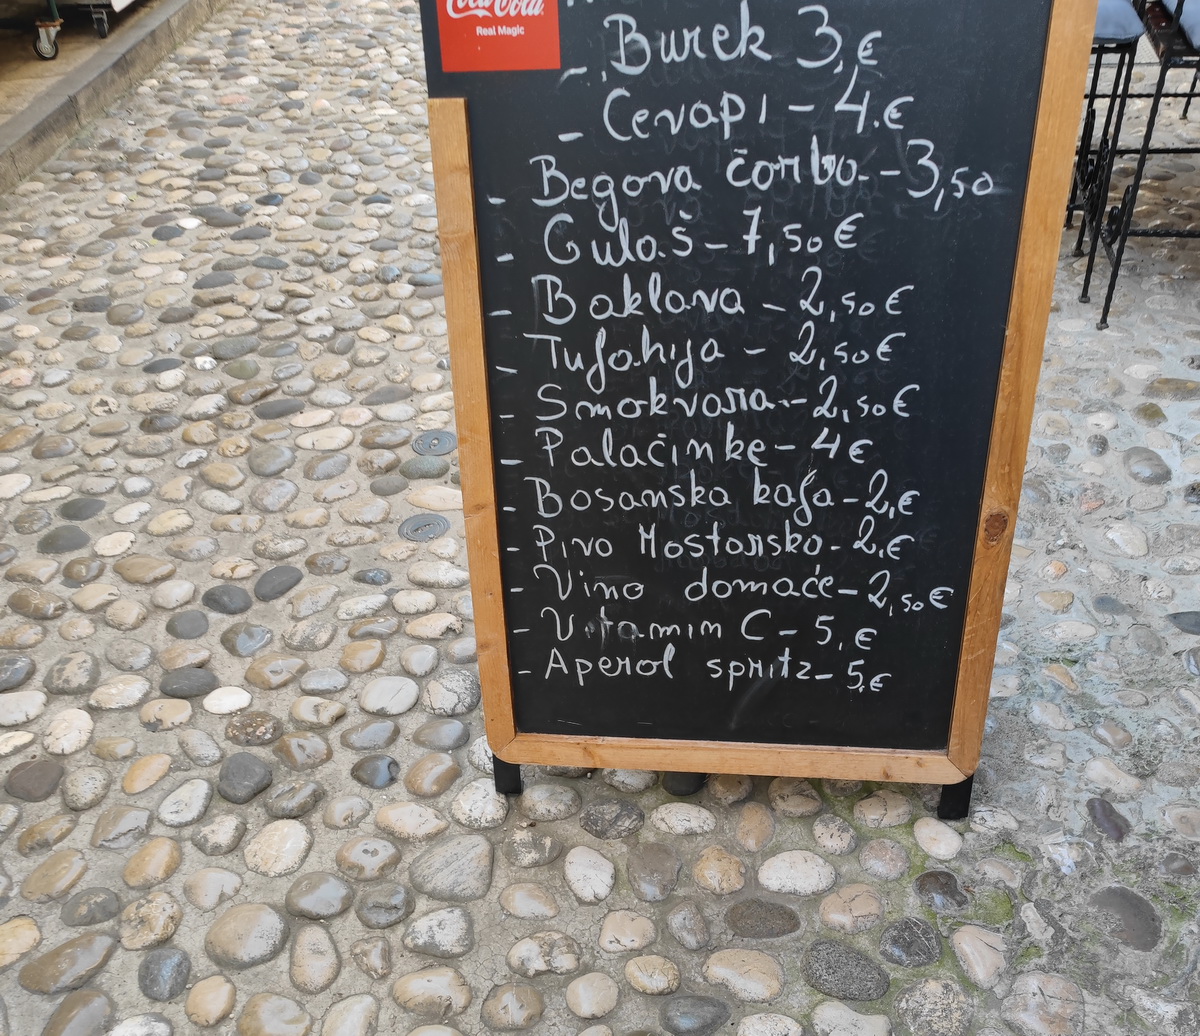 Coca-Cola
Real Magic
- Burek 3,€
- Ćevapi - 4.€
- Begova čorba - 3,50
- Gulaš - 7,50€
- Baklava - 2,50€
- Tufahija - 2,50€
- Smokvara - 2,50€
- Palačinke - 4€
- Bosanska kafa - 2,€
- Pivo Mostarsko - 2,€
- Vino domaće - 2,50€
- Vitamin C - 5,€
- Aperol spritz - 5,€